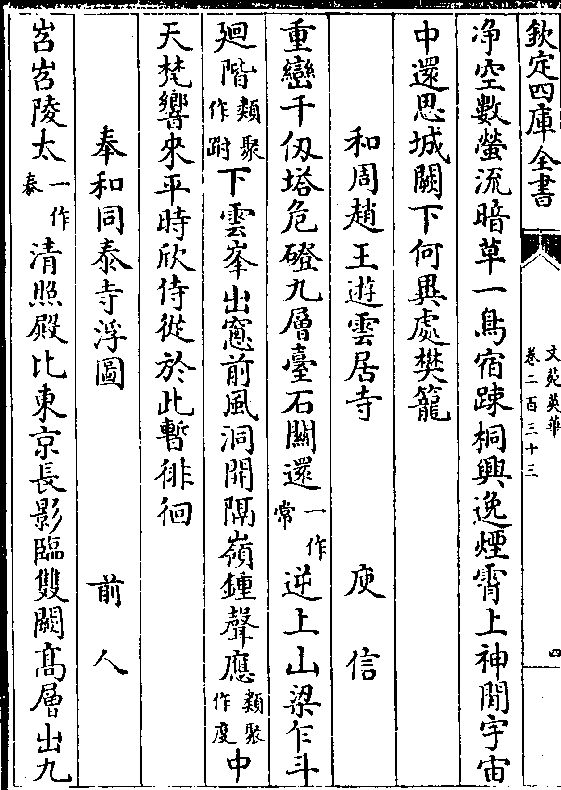 欽定四庫全書
文苑英華
卷二百三十三
四
净空數螢流暗草一鳥宿踈桐興逸煙霄上神閒宇宙
中還思城闕下何異處樊籠
和周趙王遊雲居寺 庾信
重巒千仭塔危磴九層臺石關還一作常逆上山梁乍斗
廻階類聚作跗下雲峯出窓前風洞開隔嶺鍾聲應類聚作度中
天梵響來平時欣侍從於此暫徘徊
奉和同泰寺浮圖 前人
岧岧陵太一作泰清照殿比東京長影臨雙闕髙層出九